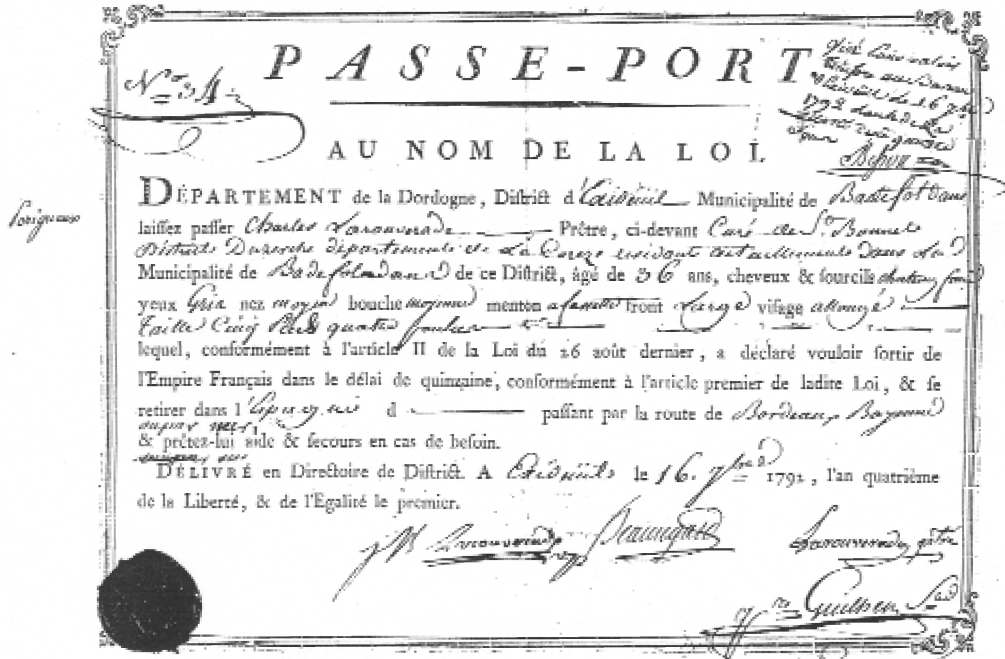 PASSE-PORT
N.º 34
1792
AU NOM DE LA LOI.
DÉPARTEMENT de la Dordogne, District d'Exideüil Municipalité de Badefol Dans
laissez passer Charles Larouverade Prêtre, ci-devant Curé de St. Bonnet
District Duzerche département de La Coreze residant actuellement dans La
Municipalité de Badefoldans de ce District, âgé de 36 ans, cheveux & sourcils
yeux Gris nez moyen bouche moyenne menton front Large visage allongé
Taille Cinq pieds quatre pouces
lequel, conformément à l'article II de la Loi du 26 août dernier, a déclaré vouloir sortir de
l'Empire Français dans le délai de quinzaine, conformément à l'article premier de ladite Loi, & se
retirer dans l'Espagne d passant par la route de Bordeaux, Bayonne
& prêtez-lui aide & secours en cas de besoin.
DÉLIVRÉ en Directoire de District. A Exideüil le 16. 7bre 1792, l'an quatrième
de la Liberté, & de l'Egalité le premier.
Larouverade
Perigueux